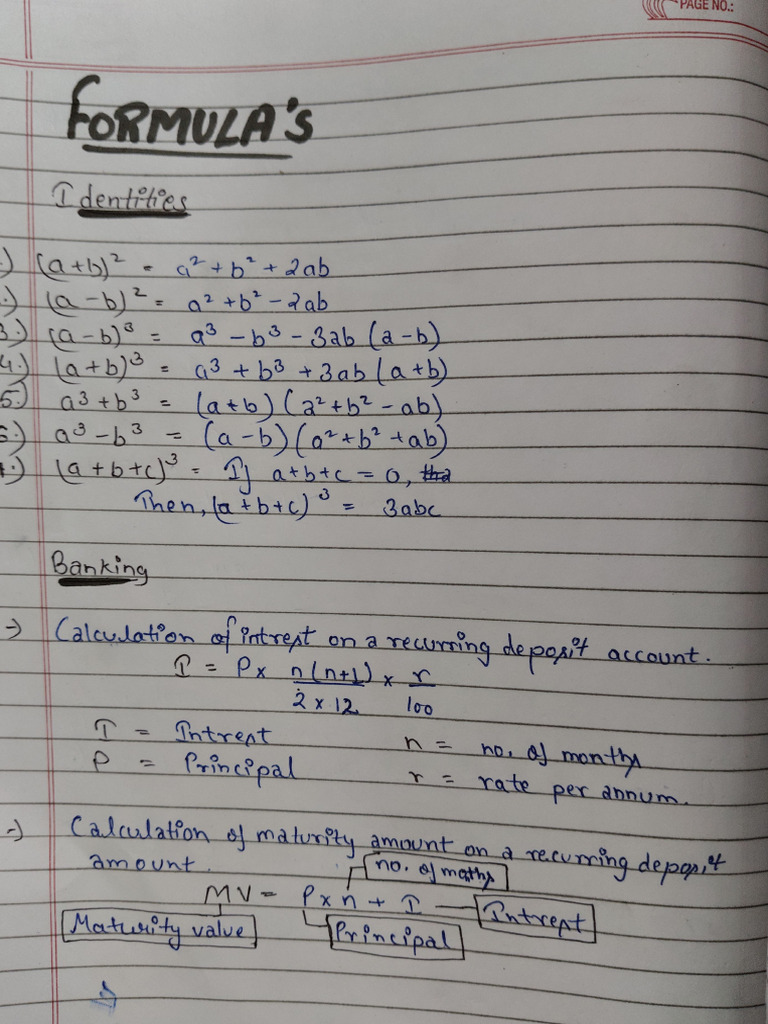 PAGE NO.:
FORMULA'S
Identities
.) (a+b)² = a² + b² + 2ab
.) (a-b)² = a² + b² - 2ab
3.) (a-b)³ = a³ - b³ - 3ab (a-b)
4.) (a+b)³ = a³ + b³ + 3ab (a+b)
5.) a³ + b³ = (a+b) (a² + b² - ab)
6.) a³ - b³ = (a-b) (a² + b² + ab)
.) (a+b+c)³ = If a+b+c = 0,
Then, (a+b+c)³ = 3abc
Banking
→ Calculation of intrest on a recurring deposit account.
I = P x n(n+1)/2 x 12 x r/100
I = Intrest n = no. of months
P = Principal r = rate per annum.
→ Calculation of maturity amount on a recurring deposit
amount.
no. of moths
MV = P x n + I Intrest
Maturity value Principal